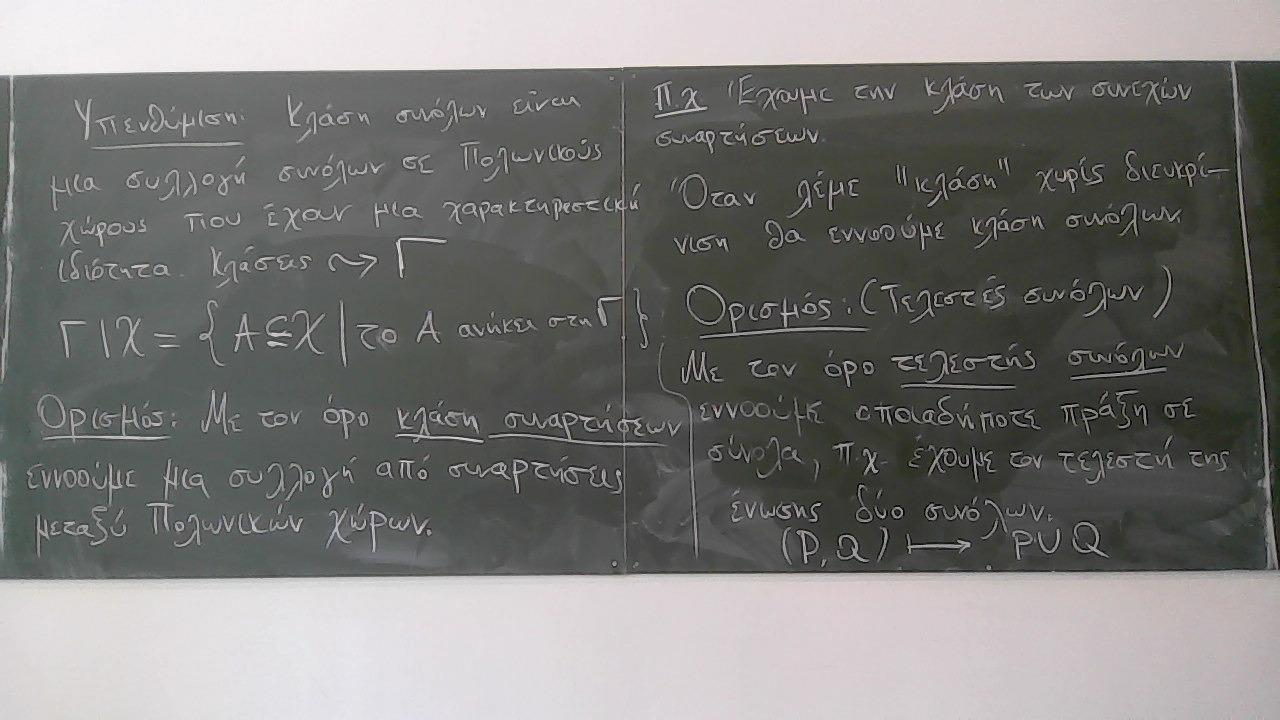 Υπενθύμιση: Κλάση συνόλων είναι
μια συλλογή συνόλων σε Πολωνικούς
χώρους που έχουν μια χαρακτηριστική
ιδιότητα. Κλάσεις ⇝ Γ
Γ|X = { A⊆X | το A ανήκει στη Γ }
Ορισμός: Με τον όρο κλάση συναρτήσεων
εννοούμε μια συλλογή από συναρτήσεις
μεταξύ Πολωνικών χώρων.
Π.χ Έχουμε την κλάση των συνεχών
συναρτήσεων.
Όταν λέμε "κλάση" χωρίς διευκρί-
νιση θα εννοούμε κλάση συνόλων.
Ορισμός: (Τελεστές συνόλων)
Με τον όρο τελεστής συνόλων
εννοούμε οποιαδήποτε πράξη σε
σύνολα, π.χ. έχουμε τον τελεστή της
ένωσης δύο συνόλων.
(P, Q) ⟼ P∪Q